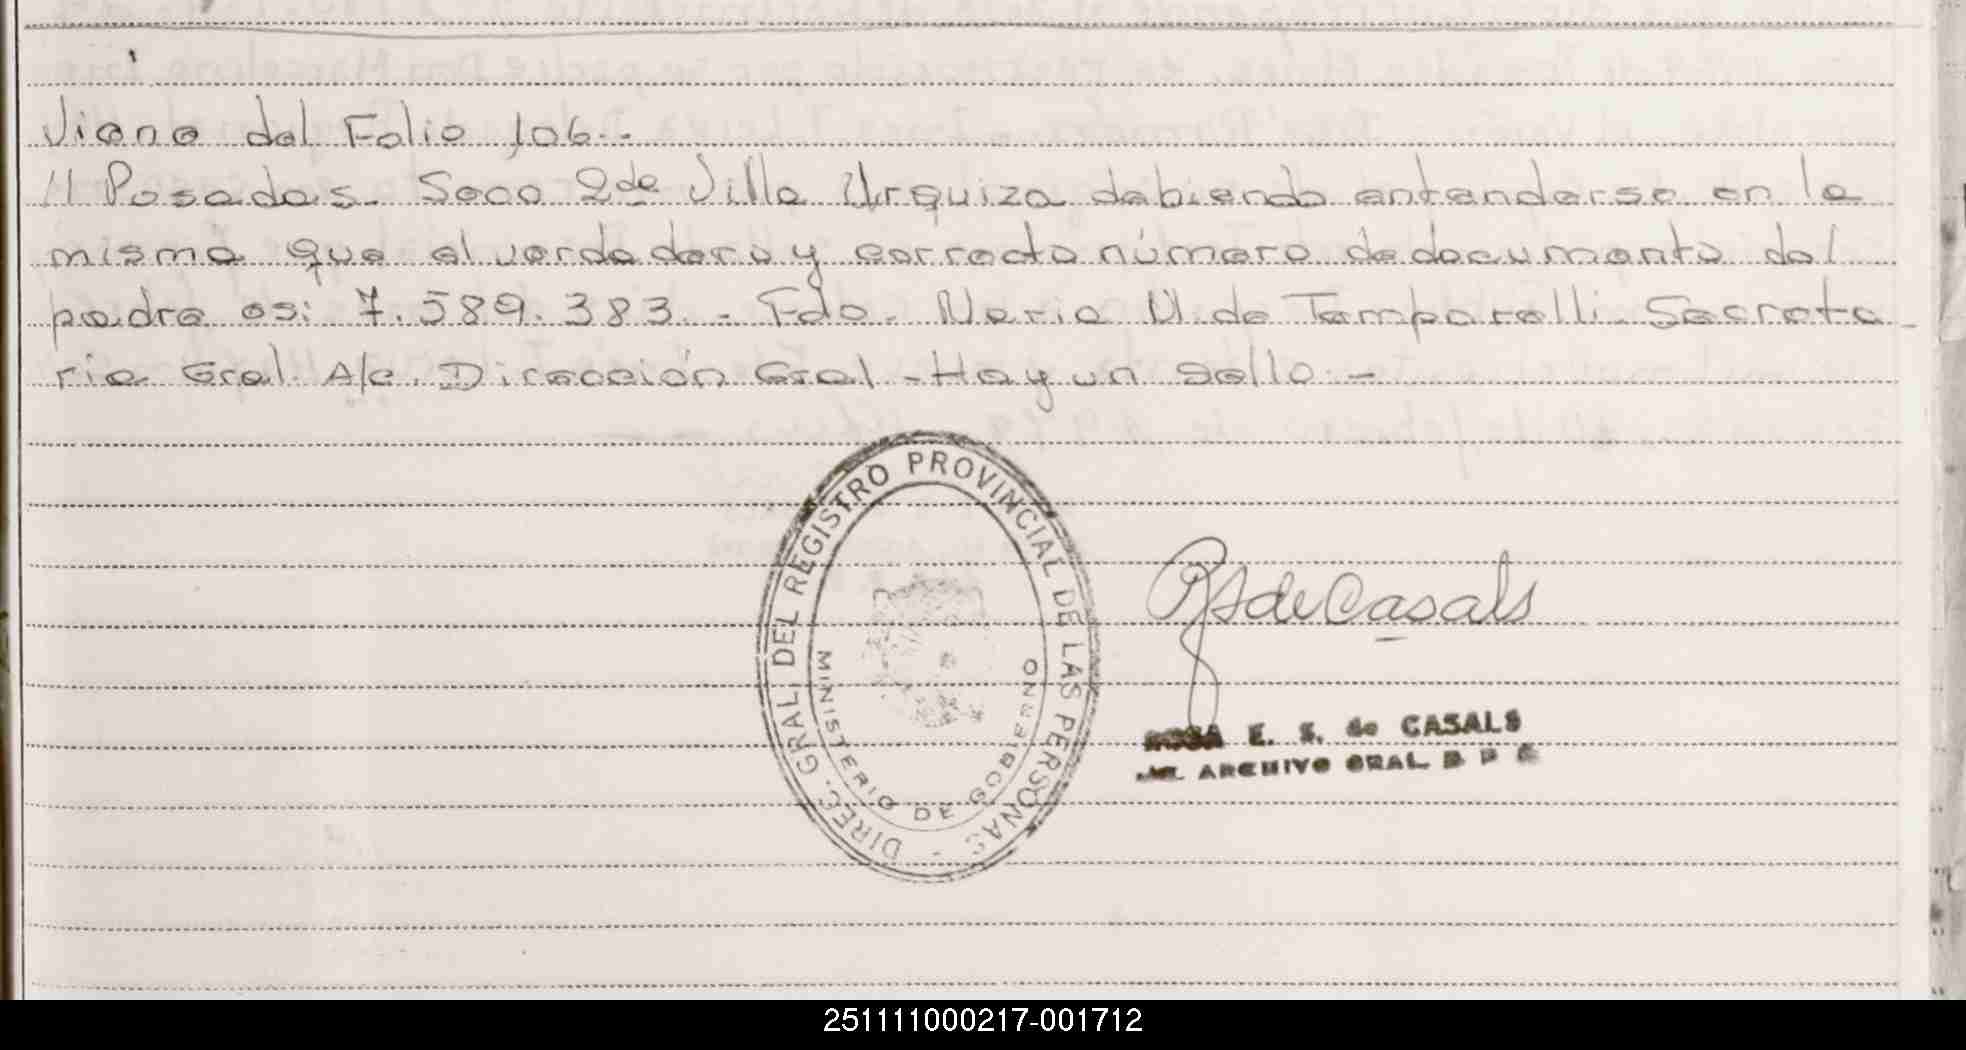 Viene del Folio 106..
// Posadas. Secc 2da Villa Urquiza debiendo entenderse en la
misma que el verdadero y correcto número de documento del
padre es: 7.589.383. - Fdo. Maria M. de Temporelli Secreta-
ria Gral. A/c. Dirección Gral - Hay un sello. -
DIREC. GRAL. DEL REGISTRO PROVINCIAL DE LAS PERSONAS -
MINISTERIO DE GOBIERNO
RS de Casals
ROSA E. S. de CASALS
ARCHIVO GRAL.
251111000217-001712